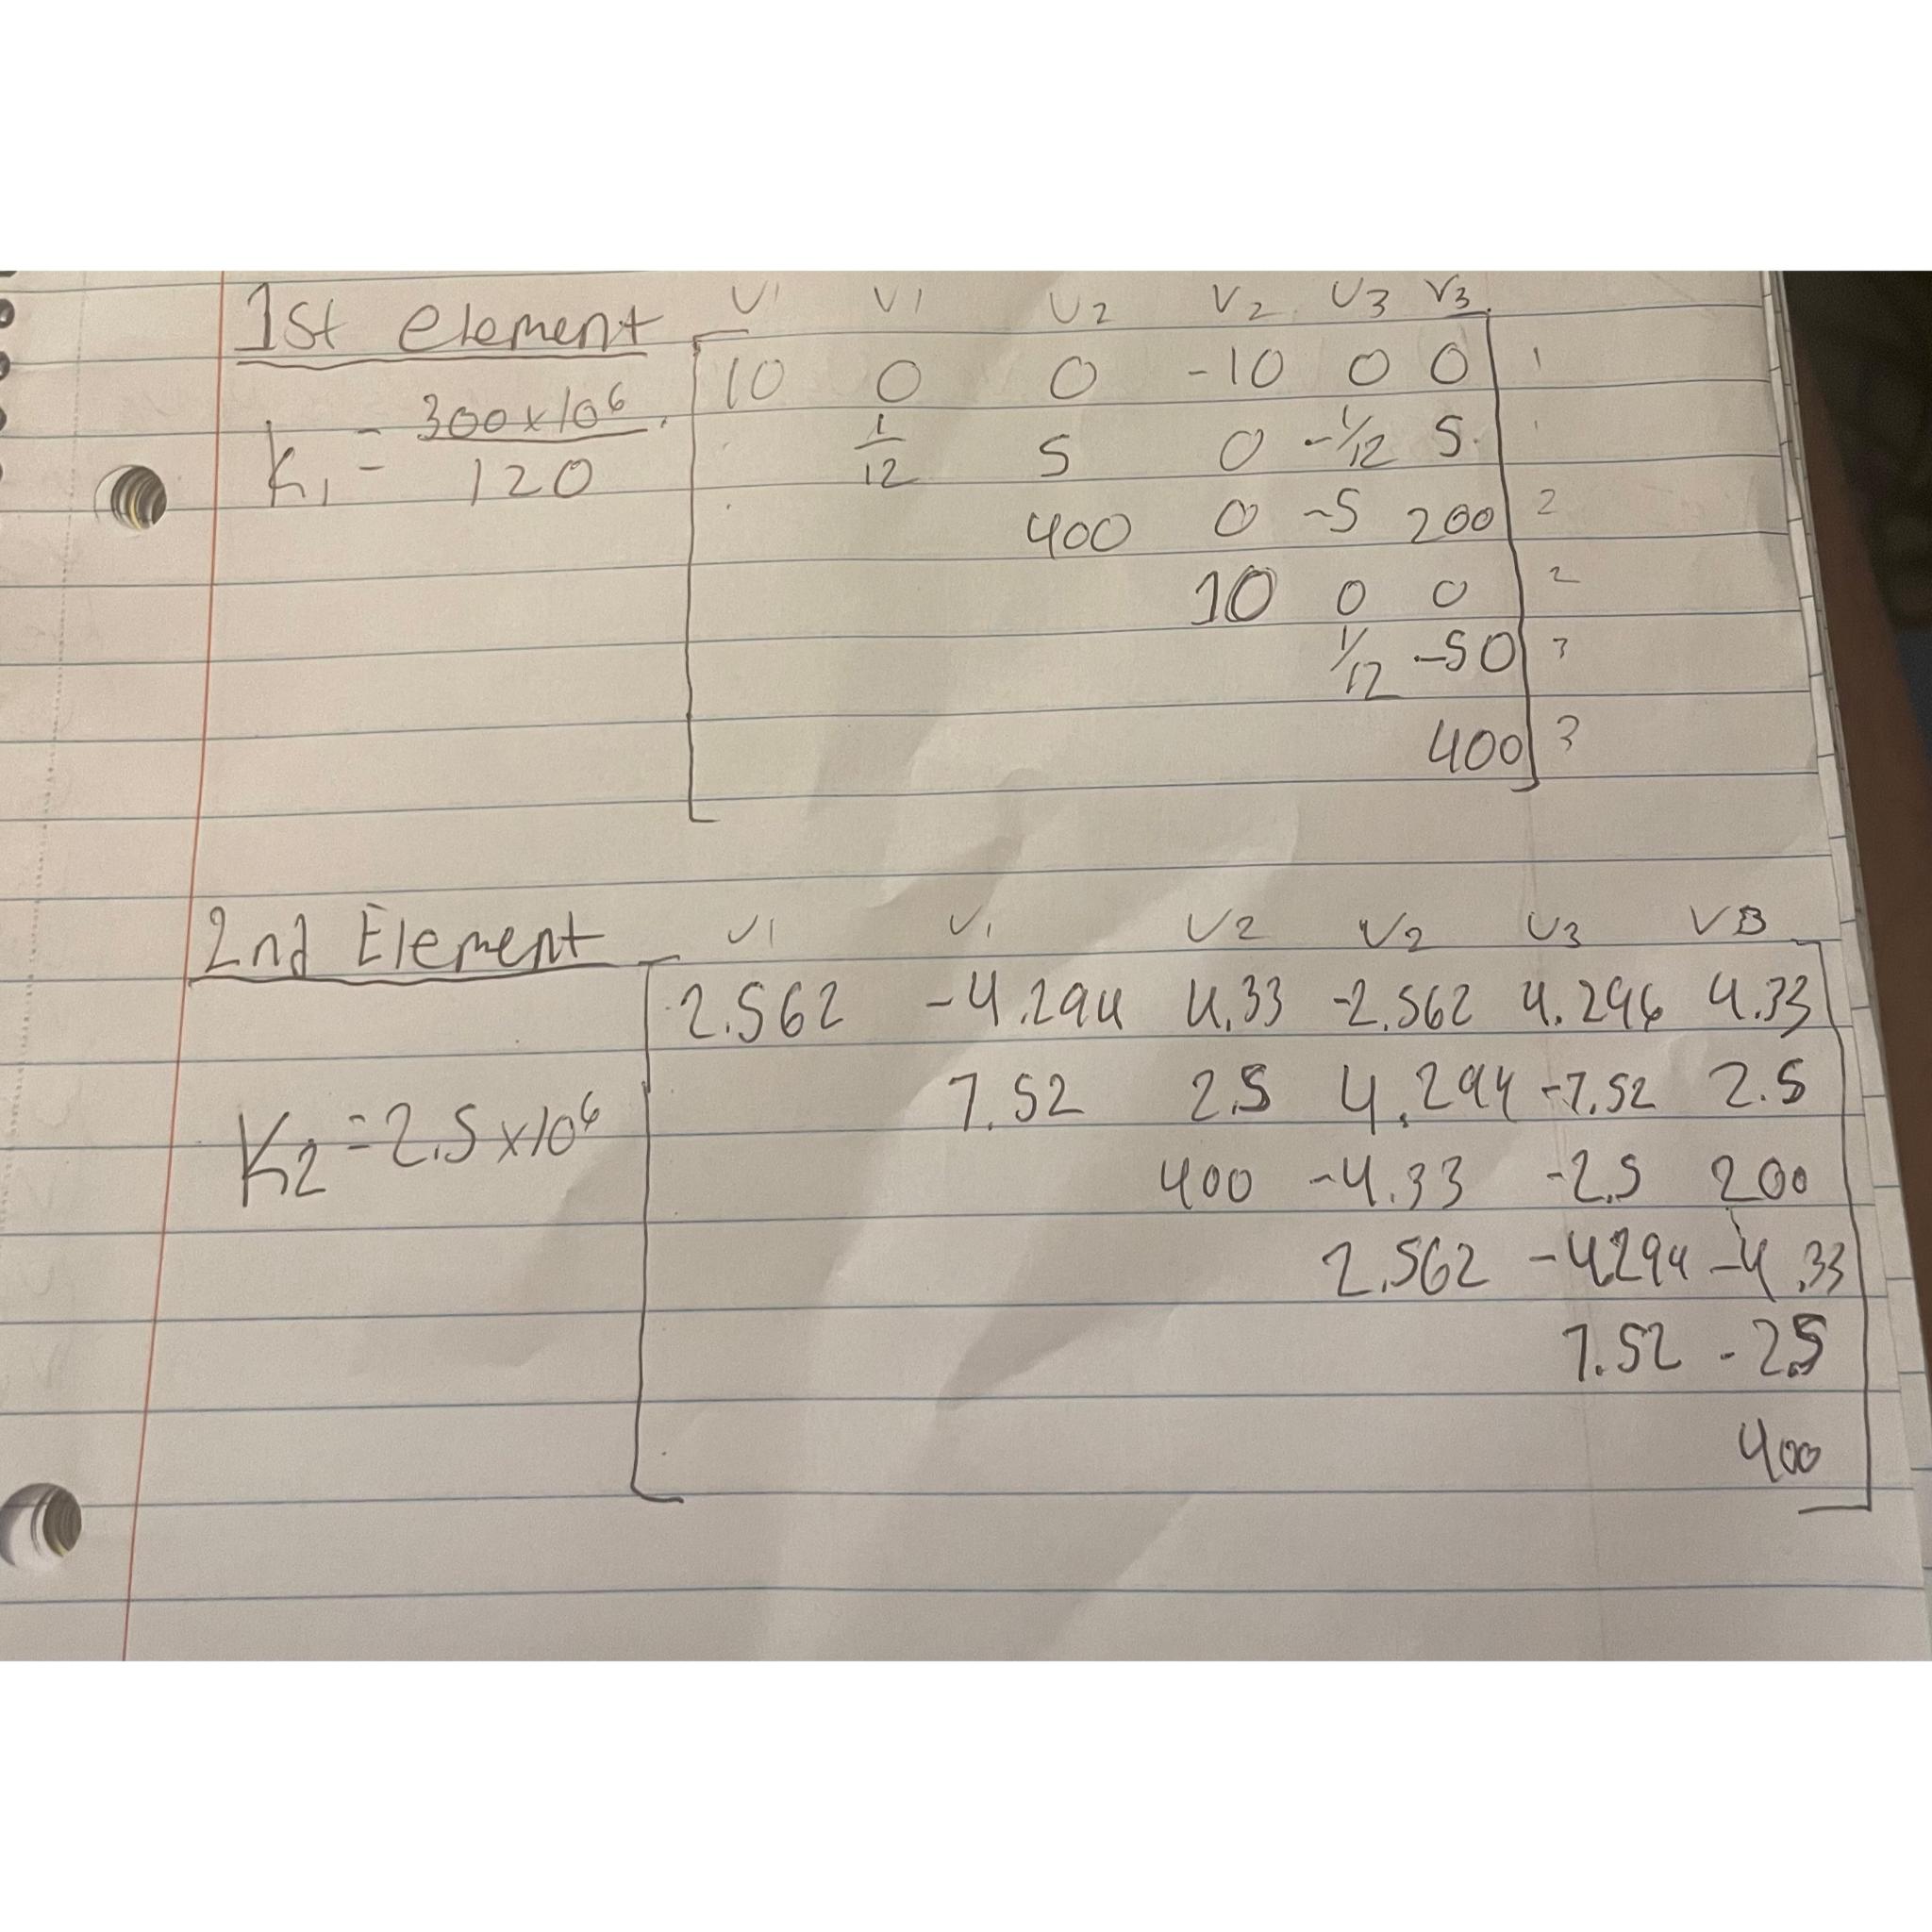 1st element U1 V1 U2 V2 U3 V3
10 0 0 -10 0 0 1
K1 = 300x10^6 / 120 1/12 5 0 -1/12 5 1
400 0 -5 200 2
10 0 0 2
1/12 -50 3
400 3
2nd Element U1 V1 U2 V2 U3 VB
2.562 -4.294 4.33 -2.562 4.296 4.33
7.52 2.5 4.294 -7.52 2.5
K2 = 2.5x10^6 400 -4.33 -2.5 200
2.562 -4.294 -4.33
7.52 -2.5
400